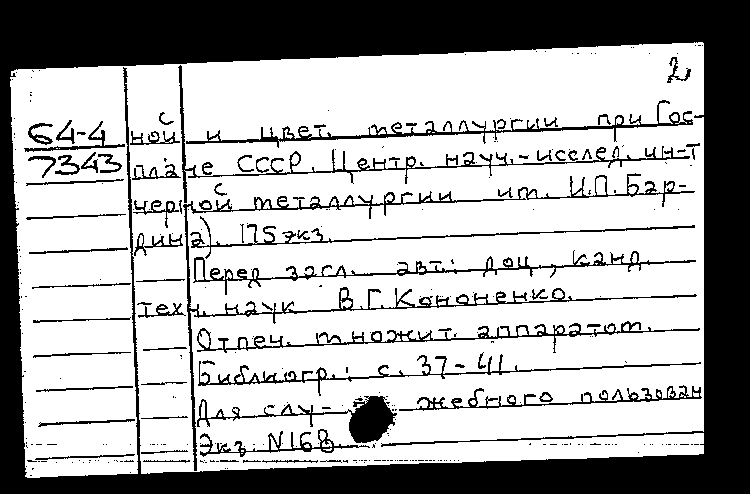 2
64-4 ной и цвет. металлургии при Гос-
7343 плане СССР. Центр. науч.-исслед. ин-т
черной металлургии им. И.П. Бар-
дина). 175 экз.
Перед загл. авт.: доц., канд.
техн. наук В.Г. Кононенко.
Отпеч. множит. аппаратом.
Библиогр.: с. 37-41.
Для слу- жебного пользован
Экз. N168.